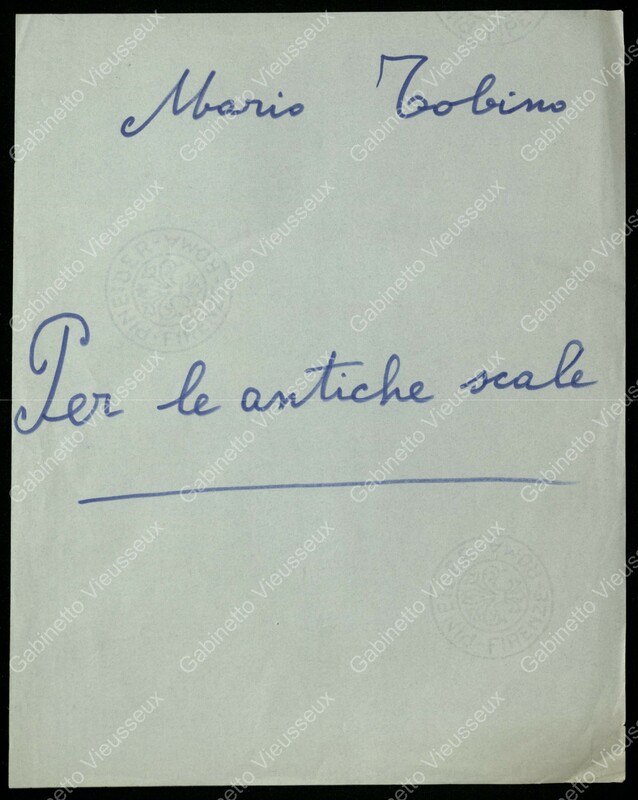 Mario Tobino
Per le antiche scale
PINEIDER - ROMA - FIRENZE
PINEIDER - ROMA - FIRENZE
Gabinetto Vieusseux